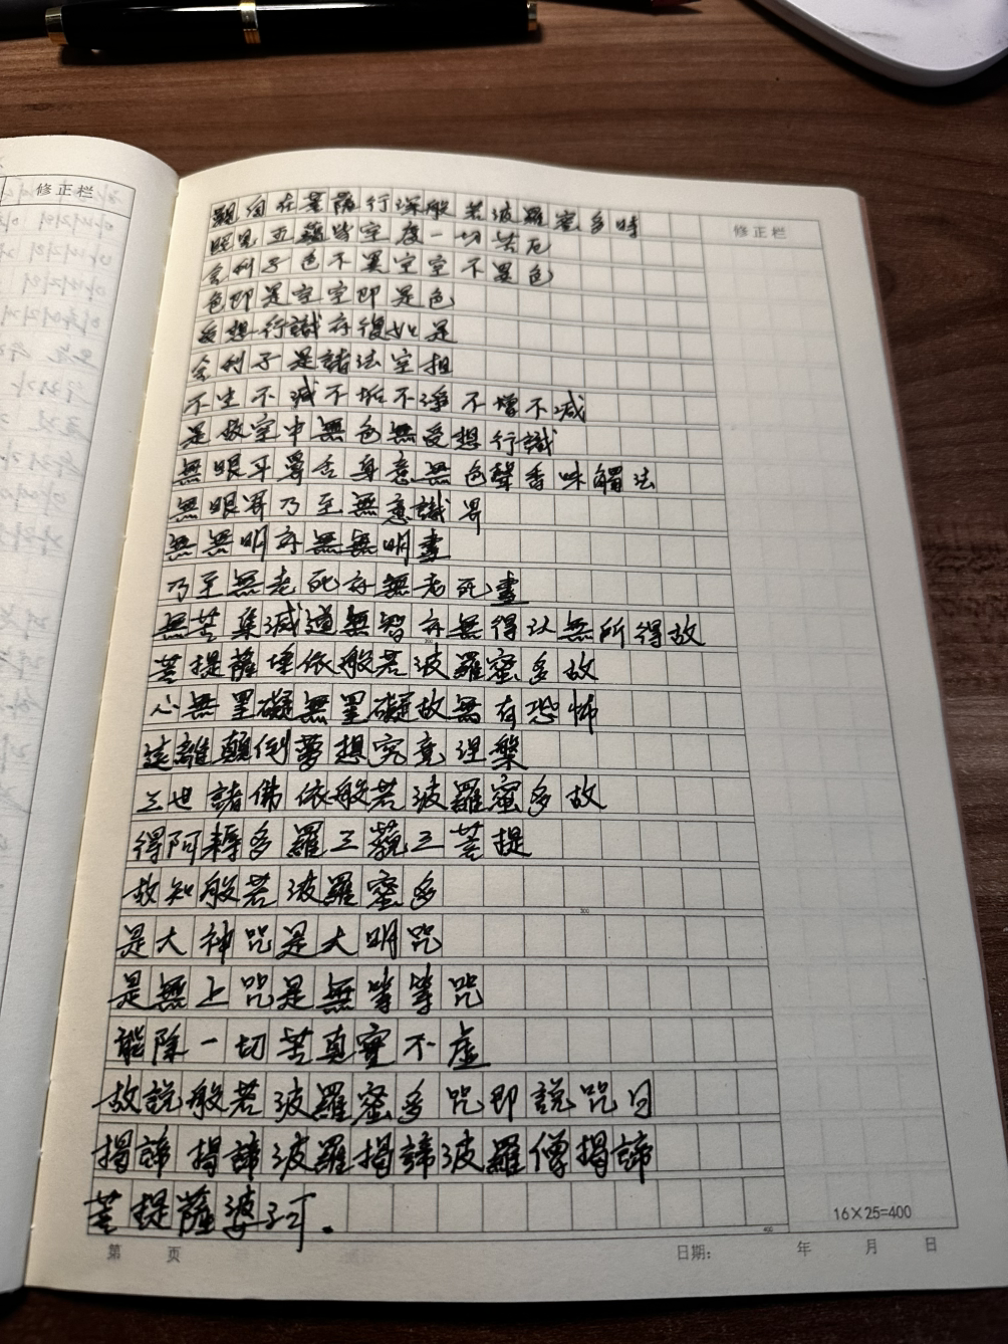 修正栏
修正栏
觀自在菩薩行深般若波羅蜜多時
照見五蘊皆空度一切苦厄
舍利子色不異空空不異色
色即是空空即是色
受想行識亦復如是
舍利子是諸法空相
不生不滅不垢不淨不增不減
是故空中無色無受想行識
無眼耳鼻舌身意無色聲香味觸法
無眼界乃至無意識界
無無明亦無無明盡
乃至無老死亦無老死盡
無苦集滅道無智亦無得以無所得故
菩提薩埵依般若波羅蜜多故
心無罣礙無罣礙故無有恐怖
遠離顛倒夢想究竟涅槃
三世諸佛依般若波羅蜜多故
得阿耨多羅三藐三菩提
故知般若波羅蜜多
是大神咒是大明咒
是無上咒是無等等咒
能除一切苦真實不虛
故說般若波羅蜜多咒即說咒曰
揭諦揭諦波羅揭諦波羅僧揭諦
菩提薩婆訶.
16×25=400
第 页 日期: 年 月 日